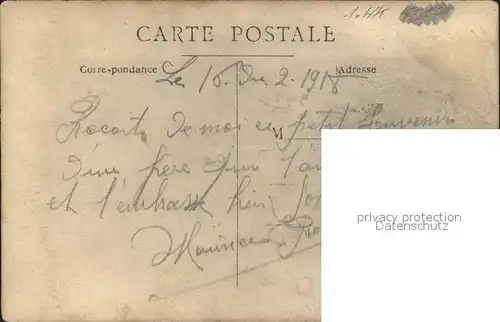 CARTE POSTALE
Correspondance
Adresse
Le 10 Du 2. 1918
M
Recoit De moi ce petit Souvenir
D'un frère qui t'ai
et t'embrasse bien
Maurice
privacy protection